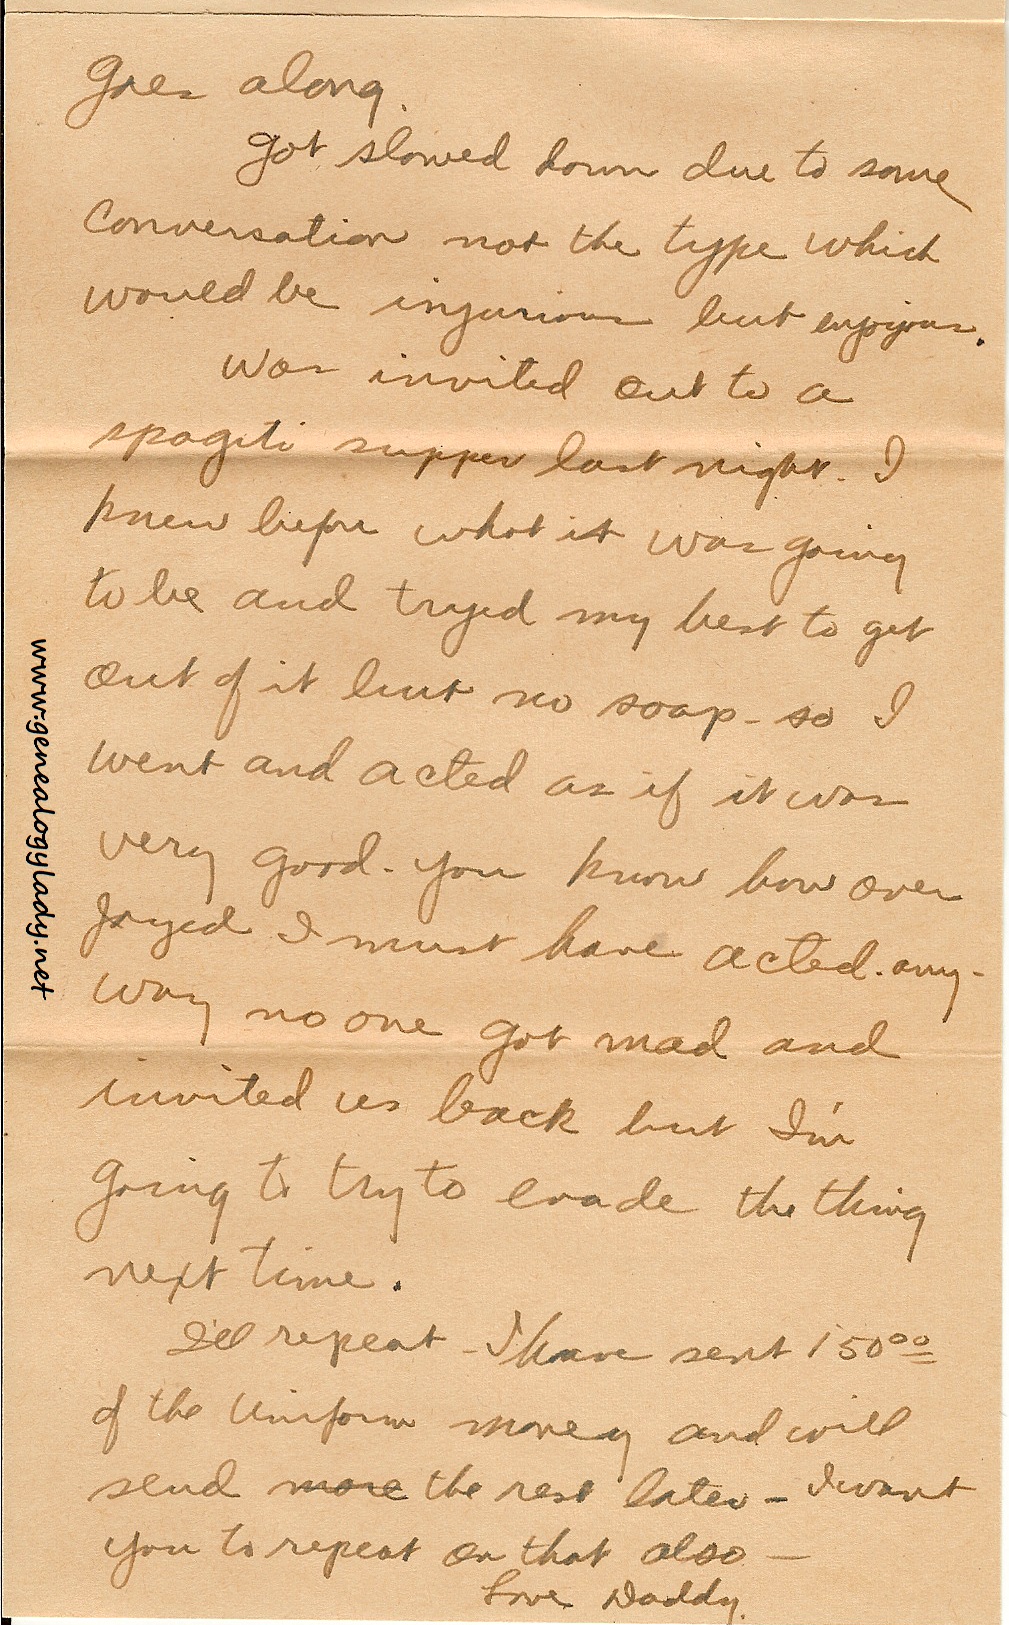 goes along.
Got slowed down due to some
conversation not the type which
would be injurious but enjoyous.
Was invited out to a
spagiti supper last night. I
knew before what it was going
to be and tryed my best to get
out of it but no soap - so I
went and acted as if it was
very good - you know how over
joyed I must have acted. any-
way no one got mad and
invited us back but I'm
going to try to evade the thing
next time.
I'll repeat - I have sent 150⁰⁰
of the Uniform money and will
send more the rest later - I want
you to repeat on that also -
Love Daddy.
www.genealogylady.net